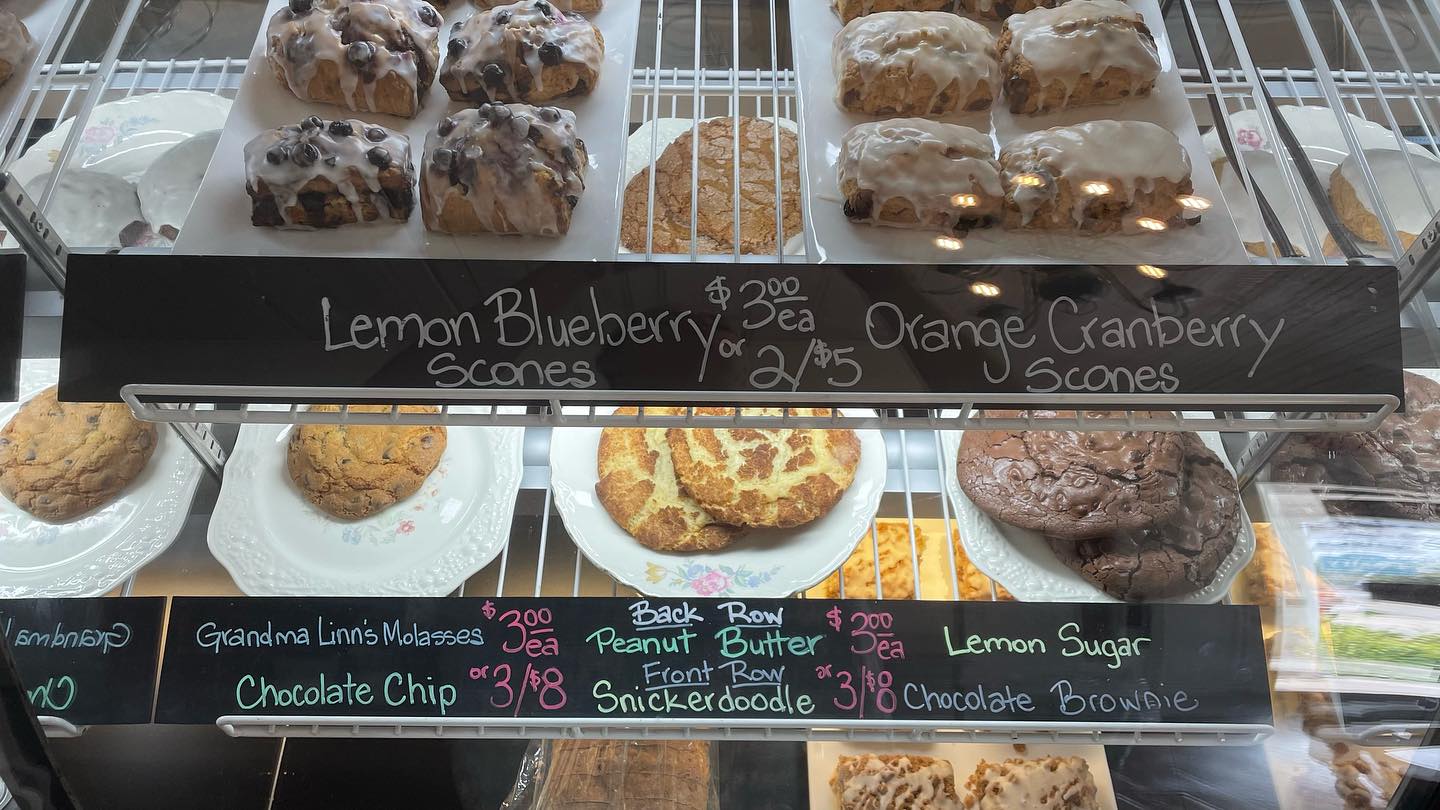 Lemon Blueberry $3.00 ea Orange Cranberry
Scones or 2/$5 Scones
Grandma Linn's Molasses $3.00 ea Back Row Peanut Butter $3.00 ea Lemon Sugar
Chocolate Chip or 3/$8 Front Row Snickerdoodle or 3/$8 Chocolate Brownie
Grandma